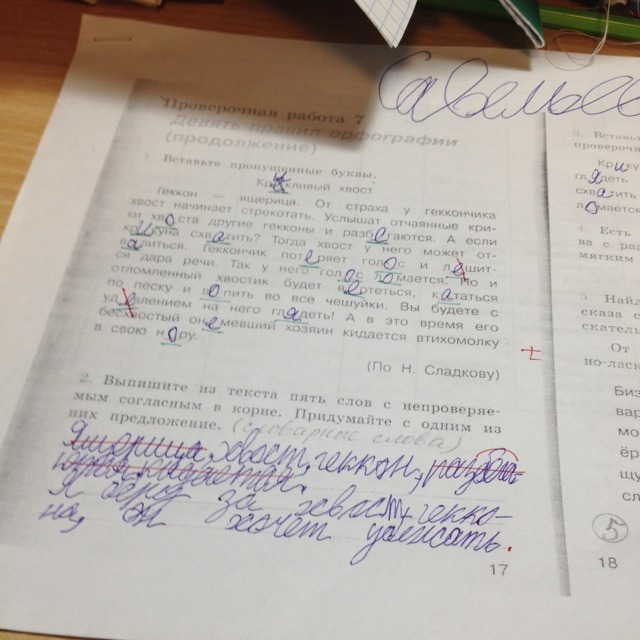 Проверочная работа 7
Девять правил орфографии
(продолжение)
1. Вставьте пропущенные буквы.
Крикливый хвост
Геккон — ящерица. От страха у геккончика
хвост начинает стрекотать. Услышат отчаянные кри-
ки хвоста другие гекконы и разбегаются. А если
крикуна схватить? Тогда хвост у него может от-
валиться. Геккончик потеряет голос и лешит-
ся дара речи. Так у него голос ломается. Но и
отломленный хвостик будет вертеться, кататься
по песку и вопить во все чешуйки. Вы будете с
удевлением на него глядеть! А в это время его
бесхвостый онемевший хозяин кидается втихомолку
в свою нору.
(По Н. Сладкову)
2. Выпишите из текста пять слов с непроверяе-
мым согласным в корне. Придумайте с одним из
них предложение. (словарные слова)
Ящерица, хвост, геккон,
Я беру за хвост гекко-
на, он хочет убежать.
17
3. Встав
проверочн
Крику
глядеть
схватить
ломается
4. Есть
ва с раз
мягким
5. Найд
сказа с
скател
От
но-ласк
Биз
вар
мо
ёр
щу
сл
5
18